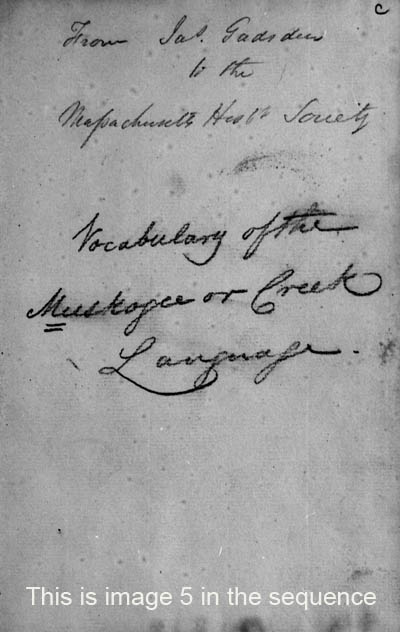 c
From Jas. Gadsden
to the
Massachusetts Histl. Society
Vocabulary of the
Muskogee or Creek
Language.
This is image 5 in the sequence